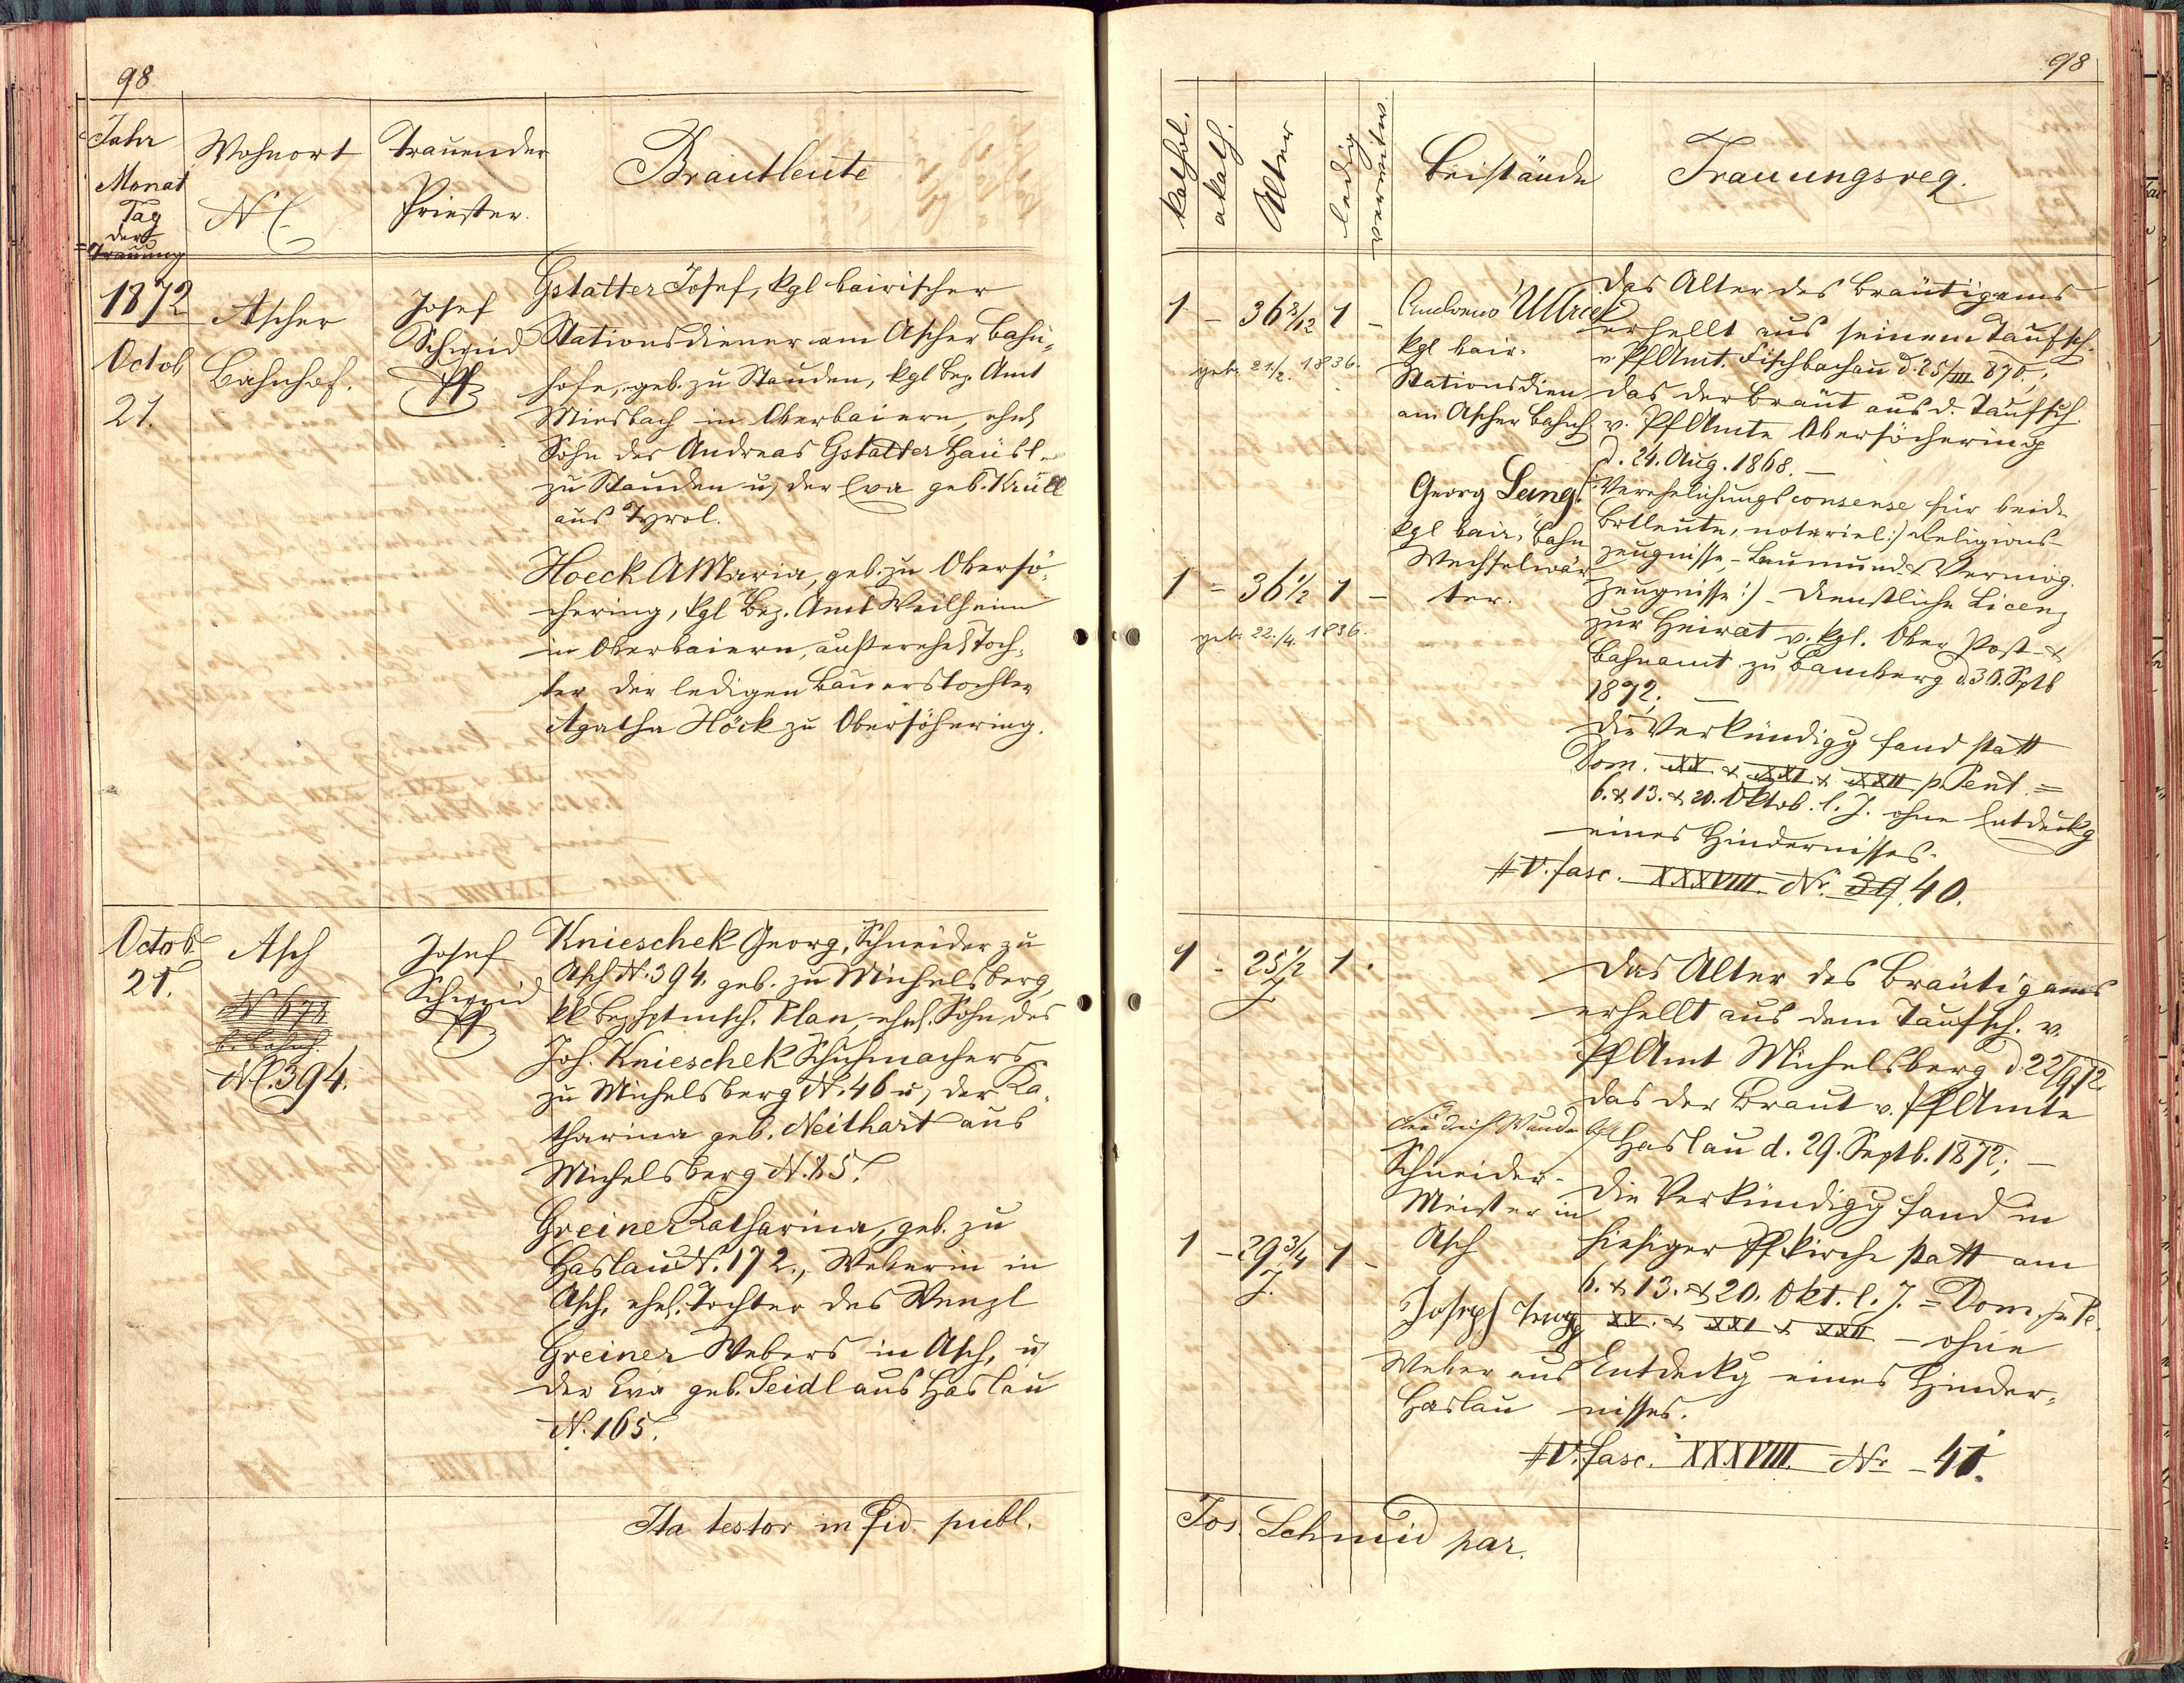 98
Jahr
Monat
Tag
der
Trauung
Wohnort
N.C.
Trauender
Priester.
Brautleute
1872
Octob
21.
Ascher
Bahnhof.
Josef
Schmid
Pf
Gstatter Josef, kgl bairischer
Stationsdiener am Ascher Bahn-
hofe, geb. zu Stauden, kgl Bez. Amt
Miesbach in Oberbaiern, ehel
Sohn des Andreas Gstatter Häusl.
zu Stauden u, der Eva geb. Krüll
aus Tyrol.
Hoeck AMaria, geb. zu Obersö-
chering, kgl Bez. Amt Weilheim
in Oberbaiern, außerehel Toch-
ter der ledigen Bauerstochter
Agatha Höck zu Obersöhering.
Octob
21.
Asch
N 673
b. Bahnh.
NC. 394.
Josef
Schmid
Pf
Knieschek Georg, Schneider zu
Asch N. 394. geb. zu Michelsberg,
kk Bezhptmsch. Plan, ehel. Sohn des
Joh. Knieschek Schuhmachers
zu Michelsberg N. 46 u, der Ka-
tharina geb. Neithart aus
Michelsberg N. 85.
Greiner Katharina, geb. zu
Haslau N. 172., Weberin in
Asch, ehel. Tochter des Wenzl
Greiner Webers in Asch, u
der Eva geb. Seidl aus Haslau
N. 165.
Ita testor in fid. publ.
98
kathol.
akath.
Alter
ledig
verwitw.
Beistände
Trauungsreq.
1 - 36 8/12 1 -
geb. 21/2. 1836.
Andreas Ullrich
kgl bair.
Stationsdien
am Ascher Bahnh
Georg Lang
kgl bair. Bahn
Wechselwär
ter.
1 = 36 1/2 1 -
geb. 22./4. 1836.
Das Alter des Bräutigams
erhellt aus seinem Taufsch.
v. PfAmt. Fischbachau d. 25/III 870.;
das der Braut aus d. Taufsch.
v. PfAmte Obersöchering
d. 24. Aug. 1868. -
Verehelichungsconsense für beide
Brtleute, notariel:) Religions-
zeugnisse - Leumunds & Vermög.
Zeugnisse:) - Dienstliche Licenz
zur Heirat v. kgl. Ober Post- &
Bahnamt zu Bamberg d. 30. Sptb
1872; -
Die Verkündigg fand statt
Dom. XX & XXI & XXII p. Pent. =
6. & 13. & 20. Oktob. l. J. ohne Entdeckg
eines Hindernisses.
# V. fasc. XXXVIII Nr. 39. 40.
1 - 25 1/2 1 .
J.
Schneider-
Meister in
Asch
1 - 29 3/4 1 -
J.
Joseph
Weber aus
Haslau
Das Alter des Bräutigams
erhellt aus dem Taufsch. v.
PfAmt Michelsberg d 22/9 72
das der Braut v. PfAmte
Haslau d. 29. Septb. 1872; -
Die Verkündigg fand in
hiesiger Pfkirche statt am
6. & 13. & 20. Okt. l. J. = Dom. p. Pe.
XX. & XXI & XXII - ohne
Entdeckg eines Hinder-
nisses.
# V. fasc. XXXVIII. Nr - 41.
Jos. Schmid par.